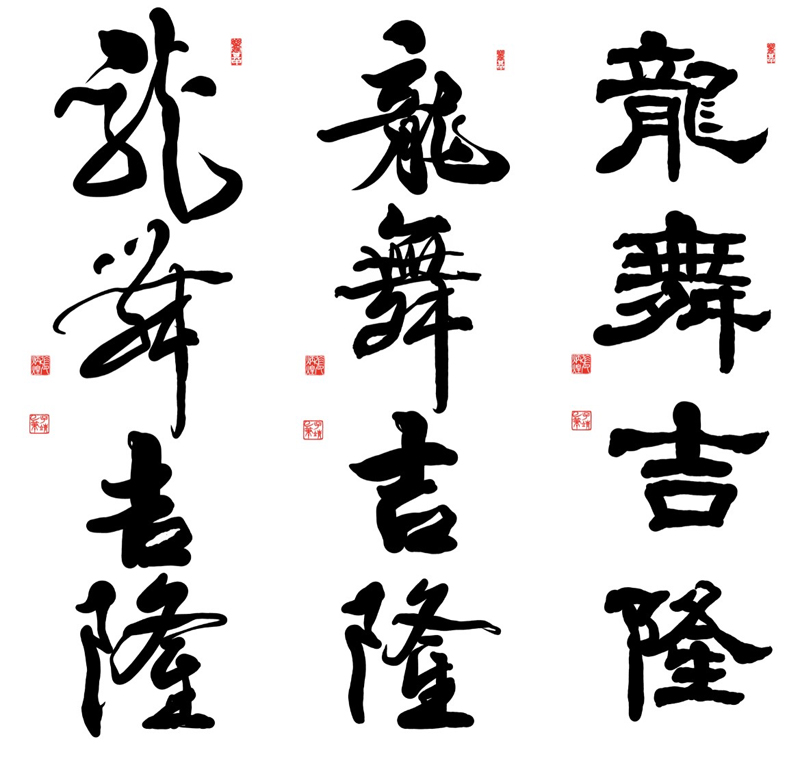 龍舞吉隆
龍舞吉隆
龍舞吉隆